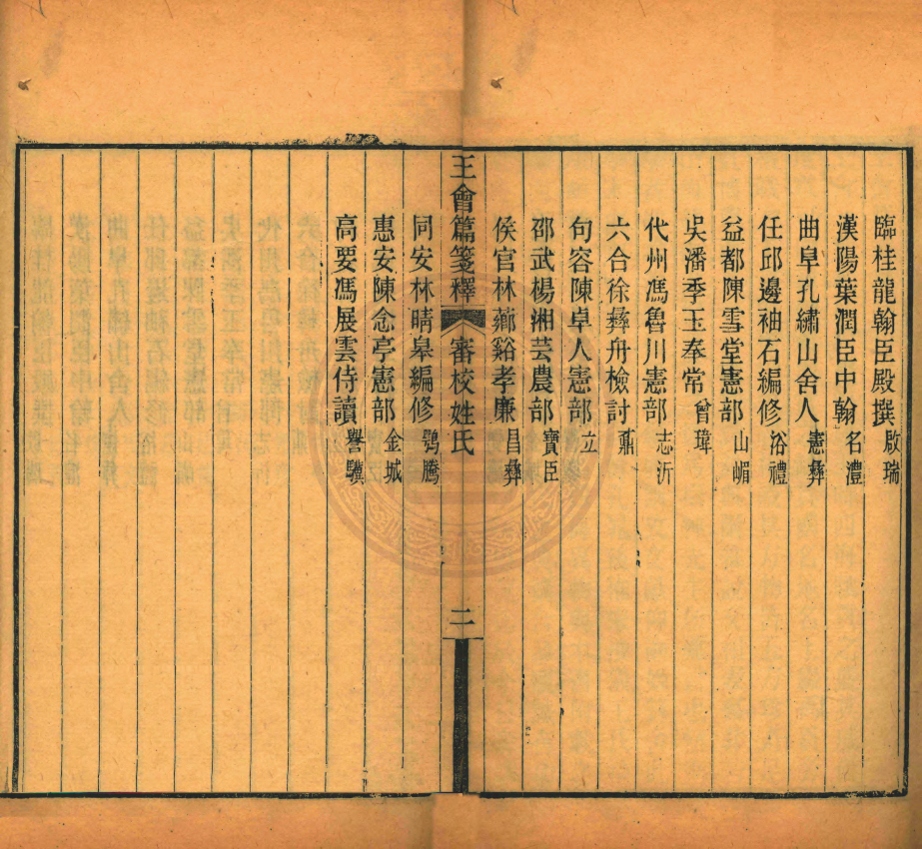 臨桂龍翰臣殿撰啟瑞
漢陽葉潤臣中翰名澧
曲阜孔繡山舍人憲彝
任邱邊袖石編修浴禮
益都陳雪堂憲部山嵋
吳潘季玉奉常曾瑋
代州馮魯川憲部志沂
六合徐彝舟檢討鼒
句容陳卓人憲部立
邵武楊湘芸農部寶臣
侯官林薌谿孝廉昌彝
王會篇箋釋 審校姓氏 二
同安林晴皋編修鶚騰
惠安陳念亭憲部金城
高要馮展雲侍讀譽驥